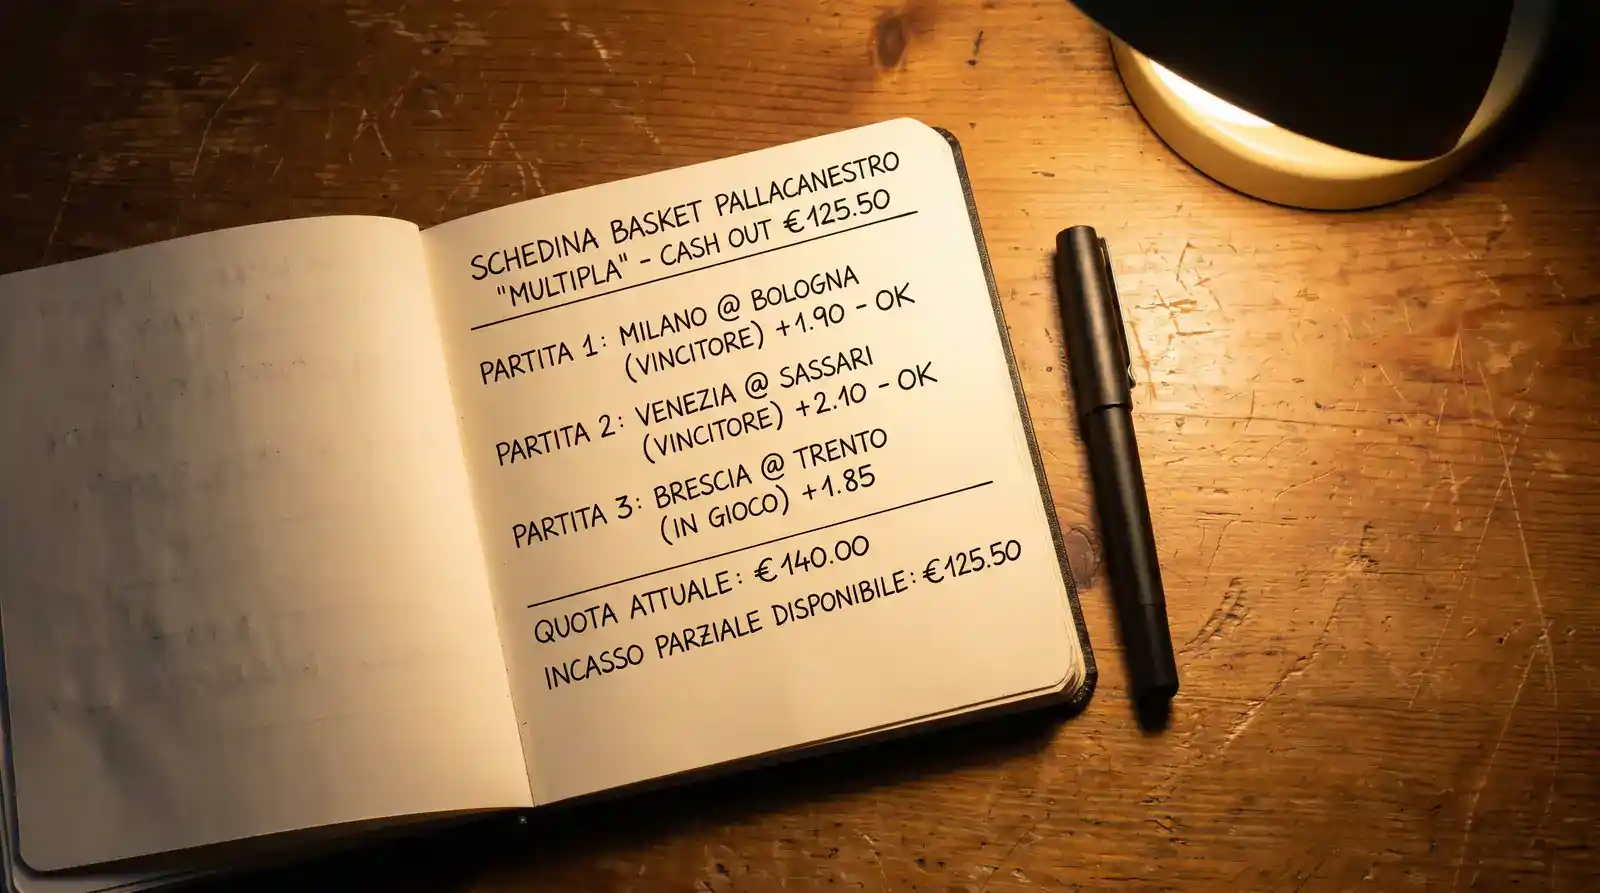 SCHEDINA BASKET PALLACANESTRO
"MULTIPLA" - CASH OUT €125.50
PARTITA 1: MILANO @ BOLOGNA
(VINCITORE) +1.90 - OK
PARTITA 2: VENEZIA @ SASSARI
(VINCITORE) +2.10 - OK
PARTITA 3: BRESCIA @ TRENTO
(IN GIOCO) +1.85
QUOTA ATTUALE: €140.00
INCASSO PARZIALE DISPONIBILE: €125.50